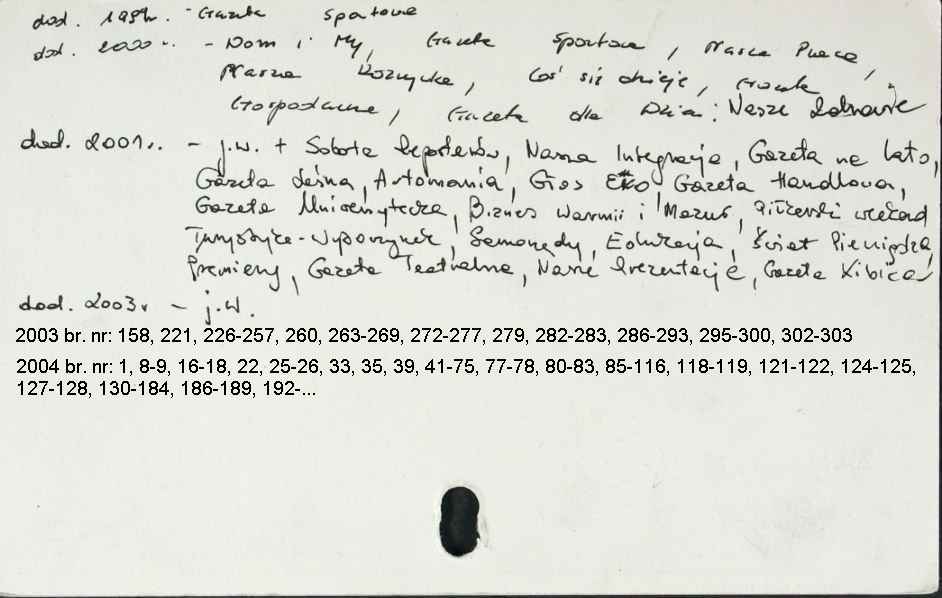 dod. 1997r. - Gazeta Sportowa
dod. 2000r. - Dom i My, Gazeta Sportowa, Nasza Praca,
Nasza Rozrywka, Coś się dzieje, Gazeta
Gospodarcza, Gazeta dla Dzieci, Nasze Zdrowie
dod. 2001r. - j.w. + Sobota Reporterów, Nasza Integracja, Gazeta na lato,
Gazeta Leśna, Automania, Głos Eko, Gazeta Handlowa,
Gazeta Uniwersytecka, Biznes Warmii i Mazur, Piłkarski weekend
Turystyka-Wypoczynek, Samorządy, Edukacja, Świat Pieniądza,
Premiery, Gazeta Teatralna, Nasze Prezentacje, Gazeta Kibica
dod. 2003r - j.w.
2003 br. nr: 158, 221, 226-257, 260, 263-269, 272-277, 279, 282-283, 286-293, 295-300, 302-303
2004 br. nr: 1, 8-9, 16-18, 22, 25-26, 33, 35, 39, 41-75, 77-78, 80-83, 85-116, 118-119, 121-122, 124-125,
127-128, 130-184, 186-189, 192-...